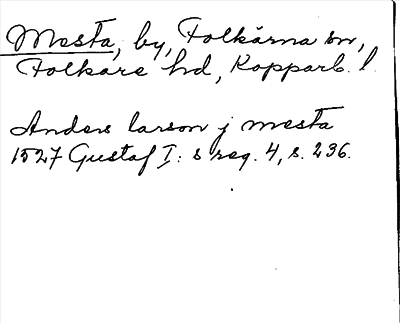 Mesta, by, Folkärna sn,
Folkare hd, Kopparb. l.
Anders larson j mesta
1527 Gustaf I: s reg. 4, s. 236.